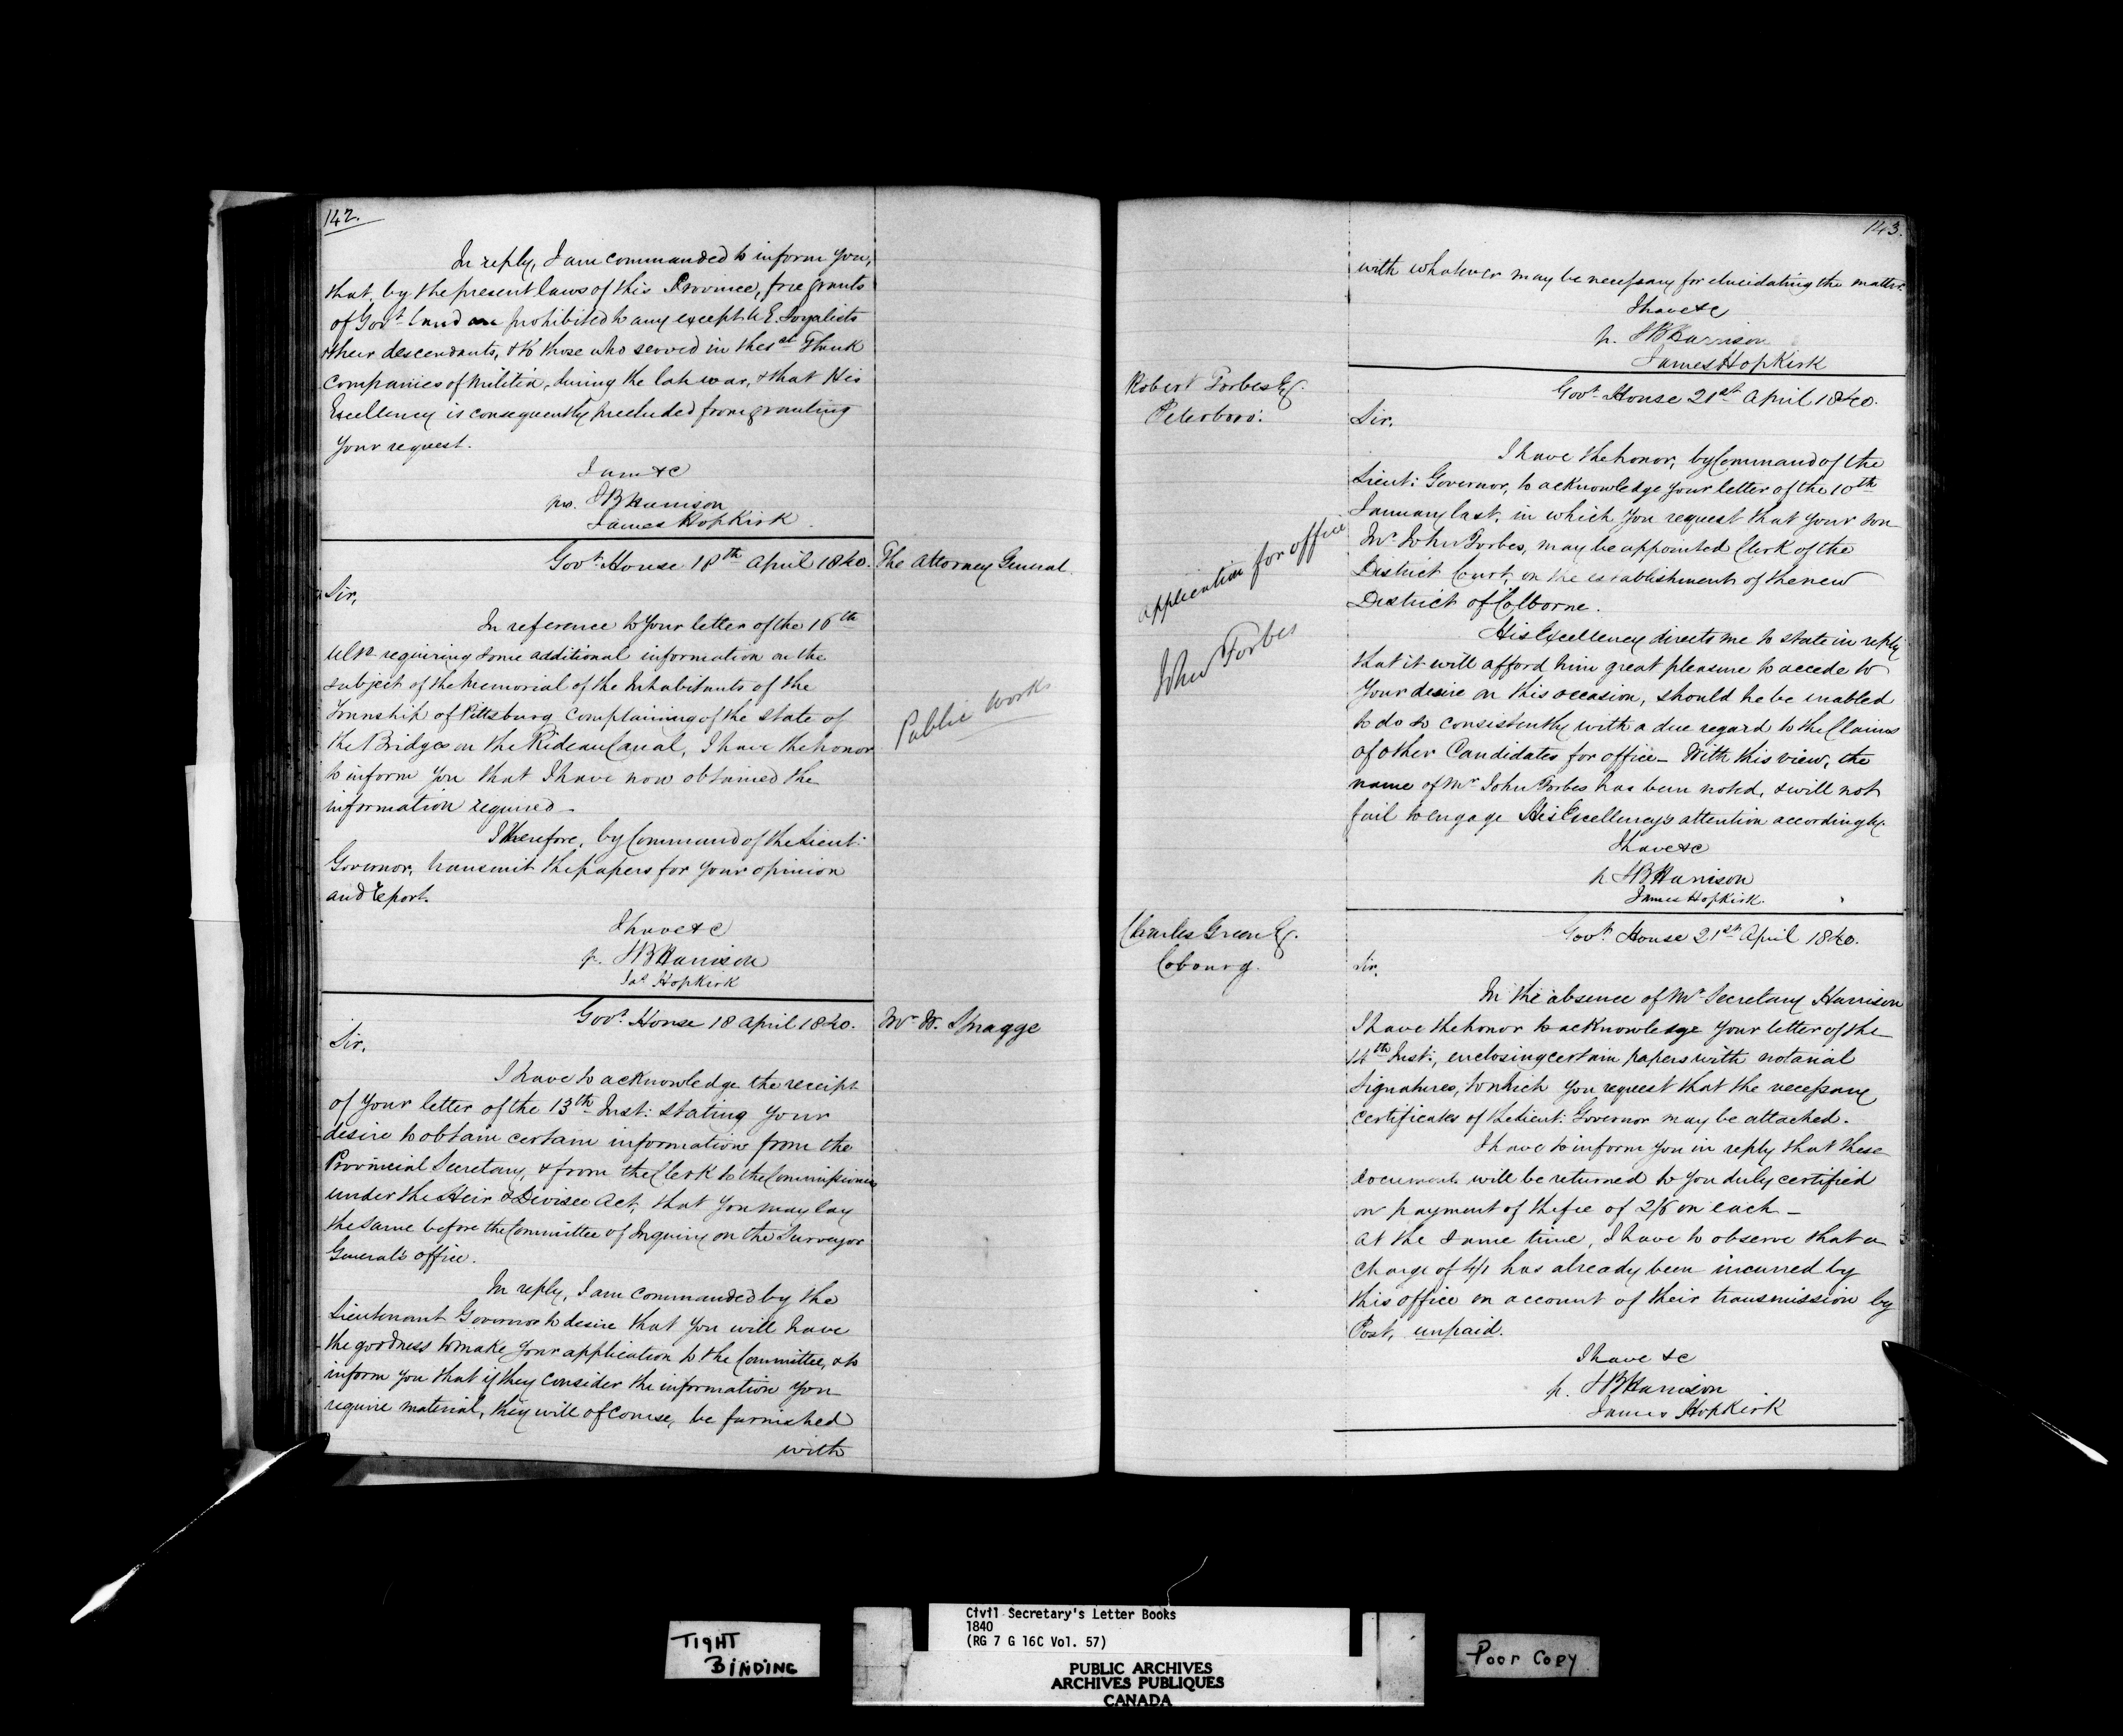 142.
In reply, I am commanded to inform you,
that, by the present laws of this Province, free grants
of Govt. Land are prohibited to any except U E. Loyalists
& their descendants, & to those who served in the 1st Flank
Companies of Militia, during the late war, & that His
Excellency is consequently precluded from granting
your request.
I am &c
pro. S B Harrison
James Hopkirk
Govt. House 18th April 1840.
The Attorney General.
Sir,
In reference to your letter of the 16th
Ulto requiring some additional information on the
subject of the Memorial of the Inhabitants of the
Township of Pittsburg complaining of the state of
the Bridges on the Rideau Canal, I have the honor
to inform you that I have now obtained the
information required.
Public Works
I therefore, by Command of the Lieut:
Governor, transmit the papers for your opinion
and report.
I have &c
p. S B Harrison
Jas Hopkirk
Govt. House 18 April 1840.
Mr W. Spragge
Sir,
I have to acknowledge the receipt
of your letter of the 13th Inst: stating your
desire to obtain certain information from the
Provincial Secretary, & from the Clerk to the Commissioners
under the Heir & Devisee Act, that you may lay
the same before the Committee of Inquiry on the Surveyor
General's office.
In reply, I am commanded by the
Lieutenant Governor to desire that you will have
the goodness to make your application to the Committee, & to
inform you that if they consider the information you
require material, they will of course, be furnished
with
143.
with whatever may be necessary for elucidating the matter.
I have &c
p. S B Harrison
James Hopkirk
Robert Forbes Esq.
Peterboro:
Govt. House 21st April 1840.
Sir,
I have the honor, by Command of the
Lieut: Governor, to acknowledge your letter of the 10th
January last, in which you request that your son
Mr John Forbes, may be appointed Clerk of the
District Court, on the establishment of the new
District of Colborne.
application for office
John Forbes
His Excellency directs me to state in reply
that it will afford him great pleasure to accede to
your desire on this occasion, should he be enabled
to do so consistently with a due regard to the Claims
of other Candidates for office - With this view, the
name of Mr John Forbes has been noted, & will not
fail to engage His Excellency's attention accordingly.
I have &c
p S B Harrison
James Hopkirk.
Charles Green Esq.
Cobourg.
Govt. House 21st April 1840.
Sir,
In the absence of Mr Secretary Harrison
I have the honor to acknowledge your letter of the
14th Inst:, enclosing certain papers with notarial
signatures, to which you request that the necessary
certificates of the Lieut: Governor may be attached.
I have to inform you in reply that these
documents will be returned to you duly certified
on payment of the fee of 2/6 on each -
At the same time, I have to observe that a
charge of 4/1 has already been incurred by
this office on account of their transmission by
Post, unpaid.
I have &c
p. S B Harrison
James Hopkirk
TIGHT
BINDING
Civil Secretary's Letter Books
1840
(RG 7 G 16C Vol. 57)
PUBLIC ARCHIVES
ARCHIVES PUBLIQUES
CANADA
Poor Copy